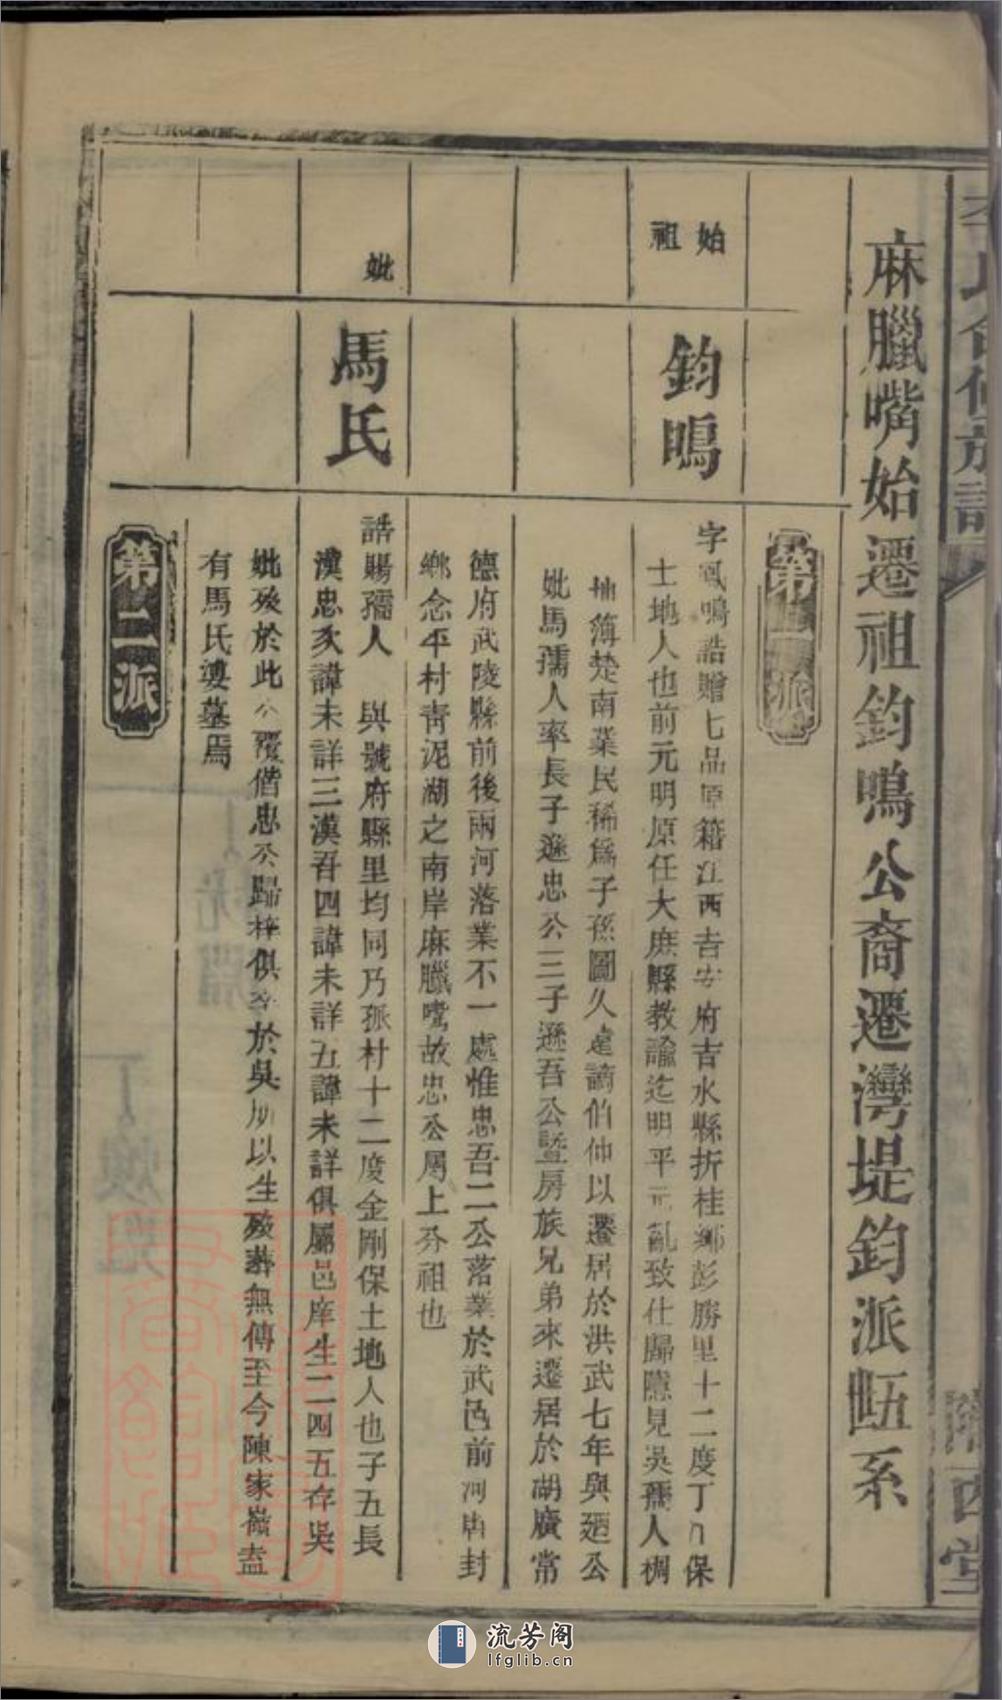 李氏合修族譜
隴西堂
麻臘嘴始遷祖鈞鳴公裔遷灣堤鈞派㽘系
第一派
始祖
鈞鳴
字鳳鳴誥贈七品原籍江西吉安府吉水縣折桂鄉彭勝里十二度丁八保
士地人也前元明原任大庶縣教諭迄明平元亂致仕歸隱見吳孺人稠
抽薄楚南業民稀為子孫圖久遠謫伯仲以遷居於洪武七年與廼公
妣馬孺人率長子遜忠公三子遜吾公暨房族兄弟來遷居於湖廣常
德府武陵縣前後兩河落業不一處惟忠吾二公落業於武邑前河南封
鄉念平村青泥湖之南岸麻臘嘴故忠公屬上分祖也
妣
馬氏
誥賜孺人 與號府縣里均同乃孫村十二度金剛保土地人也子五長
漢忠次諱未詳三漢吾四諱未詳五諱未詳俱屬邑庠生二四五存吳
妣歿於此公殯偕忠公歸梓俱卒於吳所以生歿葬無傳至今陳家嶺盍
有馬氏婆墓焉
第二派
流芳阁
lfglib.cn